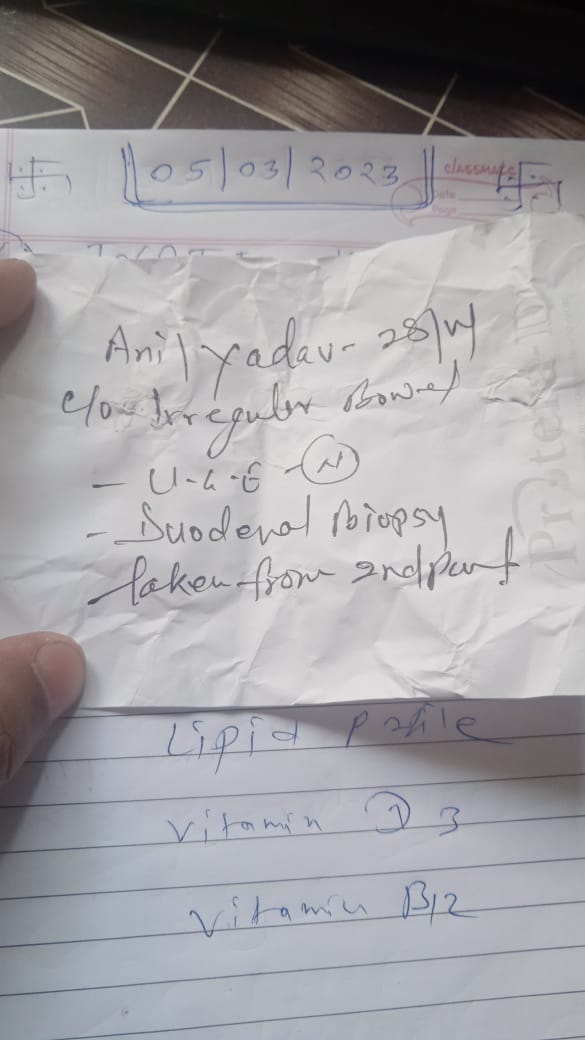 05/03/2023
CLASSMATE
Date
Page
Anil Yadav - 28/M
c/o - Irregular Bowel
- U.G.E - (N)
- Duodenal Biopsy
taken from 2nd part
Lipid Pofile
Vitamin D 3
Vitamin B12